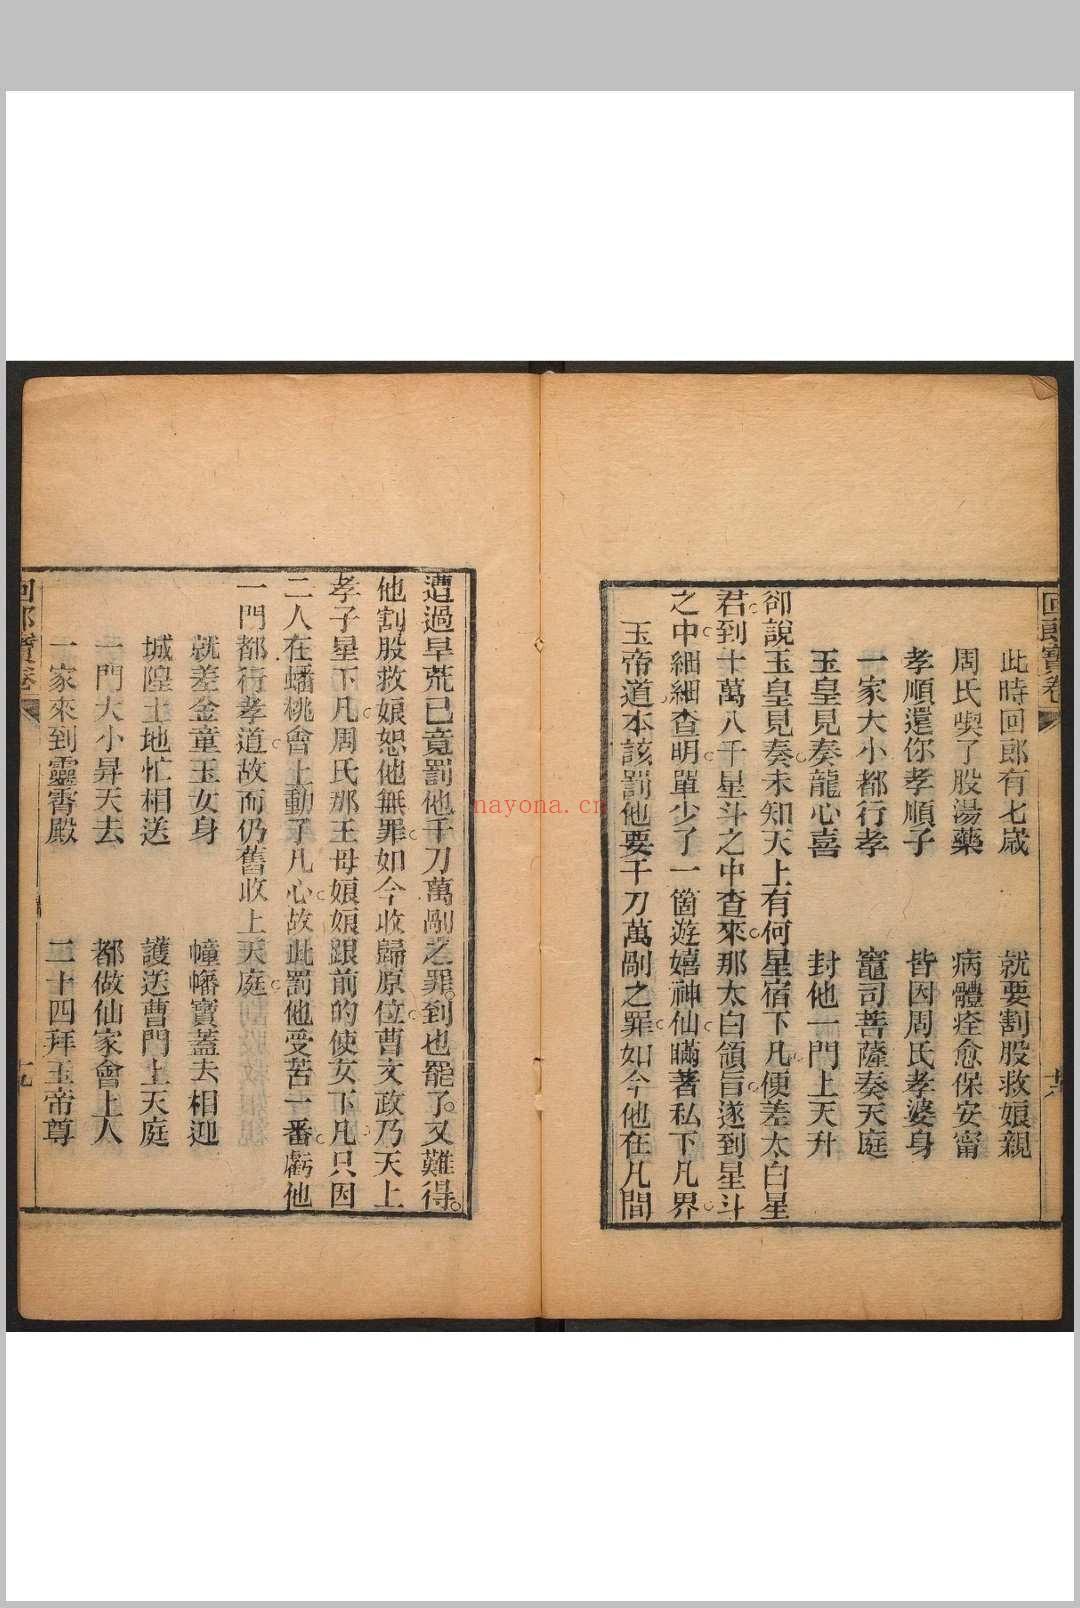 回郎寶卷
此時回郎有七歲　就要割股救娘親
周氏喫了股湯藥　病體痊愈保安甯
孝順還你孝順子　皆因周氏孝婆身
一家大小都行孝　竈司菩薩奏天庭
玉皇見奏龍心喜　封他一門上天升
卻說玉皇見奏。未知天上有何星宿下凡。便差太白星
君。到十萬八千星斗之中查來。那太白領旨。遂到星斗
之中。細細查明。單少了一箇遊嬉神仙。瞞著私下凡界。
玉帝道。本該罰他要千刀萬剮之罪。如今他在凡間
遭過旱荒。已竟罰他千刀萬剮之罪。到也罷了。又難得。
他割股救娘。恕他無罪。如今收歸原位。曹文政乃天上
孝子星下凡。周氏那王母娘娘跟前的使女下凡。只因
二人在蟠桃會上動了凡心。故此罰他受苦一番。虧他
一門都行孝道。故而仍舊收上天庭。
就差金童玉女身　幢幡寶蓋去相迎
城隍土地忙相送　護送曹門上天庭
一門大小昇天去　都做仙家會上人
一家來到靈霄殿　二十四拜玉帝尊
回郎寶卷
nayona.cn